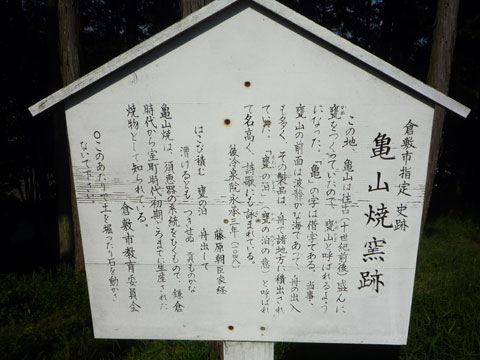 倉敷市指定 史跡
亀山焼窯跡
この地、亀山は往古（十世紀前後）盛んに
甕をつくっていたので、甕山と呼ばれるよう
になった、「亀」の字は借字である。当事、
甕山の前面は波静かな海であって、舟の出入
も多く、その製品は、舟で諸地方に積出され
ていた、「甕の泊」（甕の泊の意）と呼ばれ
て名高く、詩歌にも詠まれている。
後冷泉院永承三年
藤原朝臣家経
はこび積む 甕の泊 舟出して
漕げるとも つきせぬ 貢ものかな
亀山焼は、須恵器の系統をひくもので、鎌倉
時代から室町時代初期ごろまでに生産された
焼物として知られている。
倉敷市教育委員会
○このあたりで土を掘ったり石を動かさ
ないで下さい